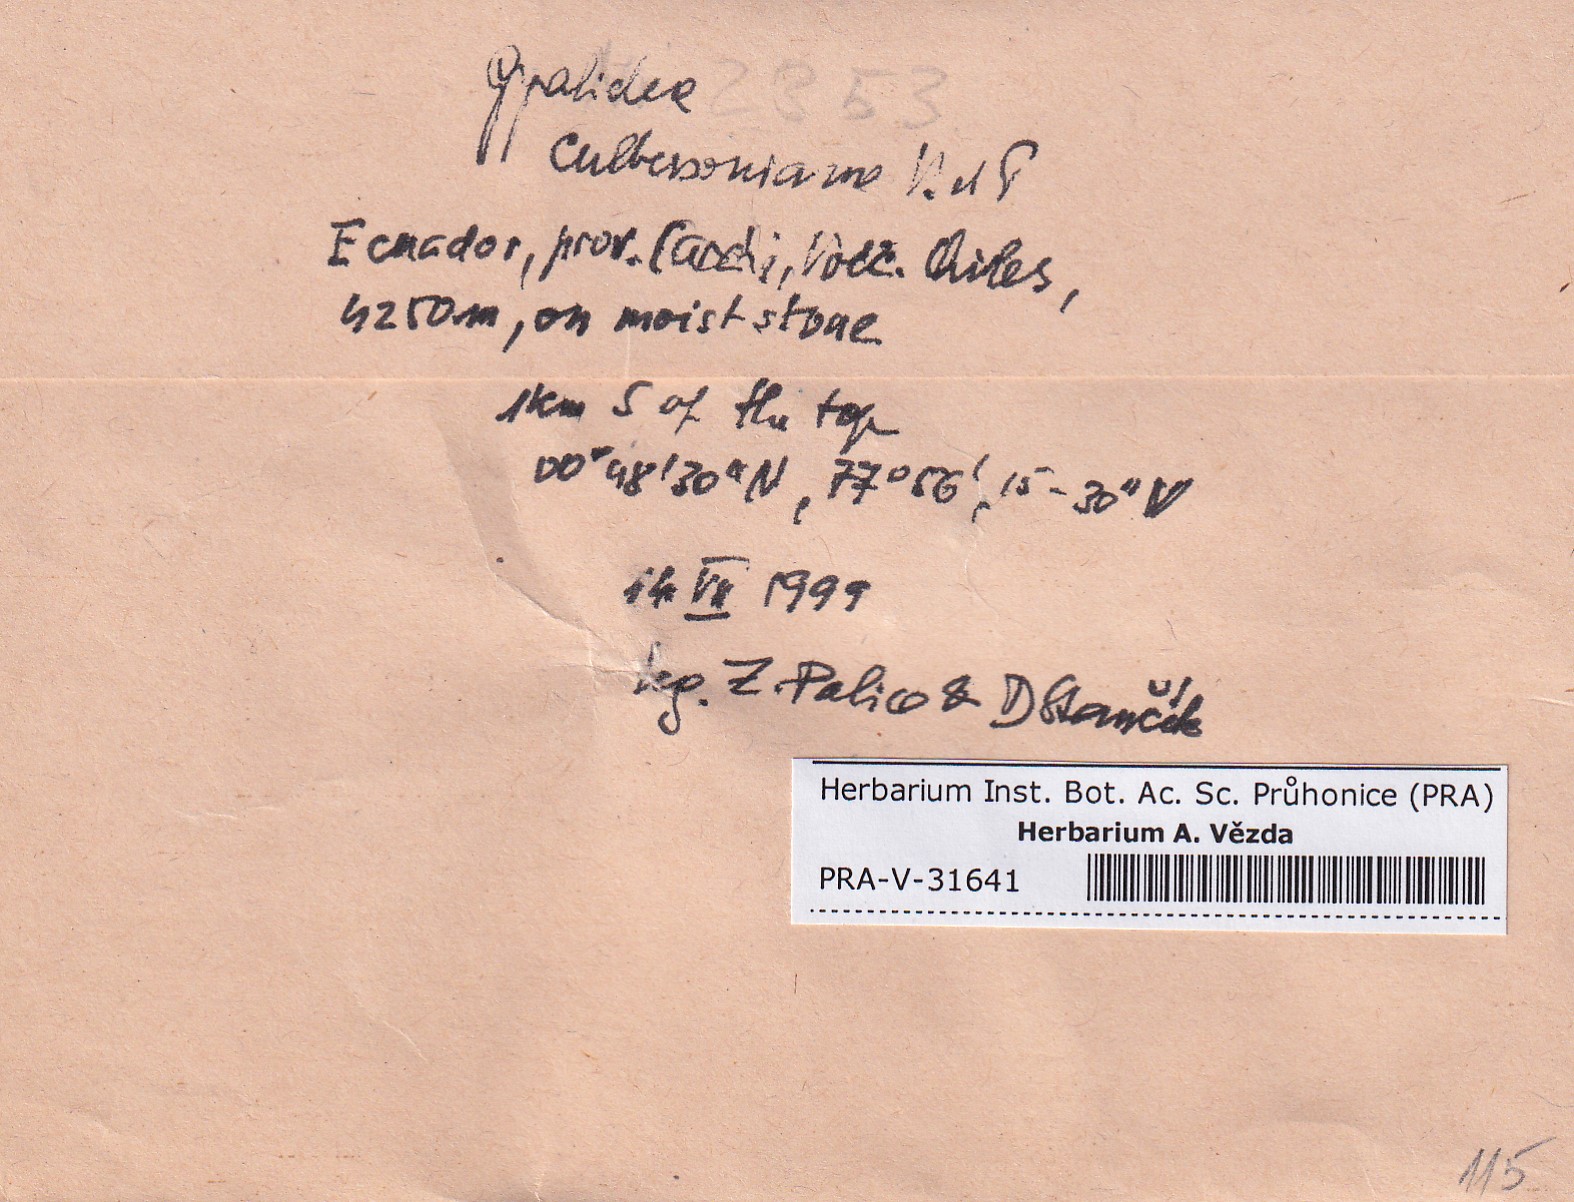 Gyalidea 2353
culbersoniana V. et P
Ecuador, prov. Carchi, Volc. Chiles,
4250m, on moist stone
1km S of the top
00°48'30"N, 77°56', 15-30" W
14 VII 1999
leg. Z. Palice & D Stančík
Herbarium Inst. Bot. Ac. Sc. Průhonice (PRA)
Herbarium A. Vězda
PRA-V-31641
115